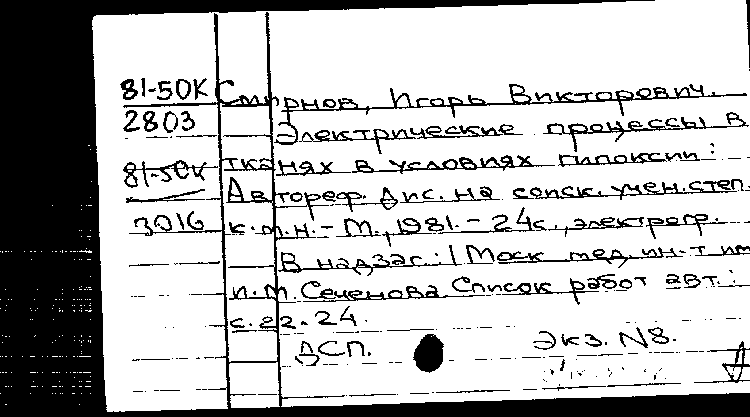 81-50К Смирнов, Игорь Викторович.
2803 Электрические процессы в
81-50К тканях в условиях гипоксии:
Автореф. дис. на соиск. учен. степ.
3016 к.м.н. - М., 1981. - 24с., электрогр.
В надзаг.: 1 Моск мед. ин-т им
И.М. Сеченова. Список работ авт.:
с. 22-24.
ДСП. Экз. N8.